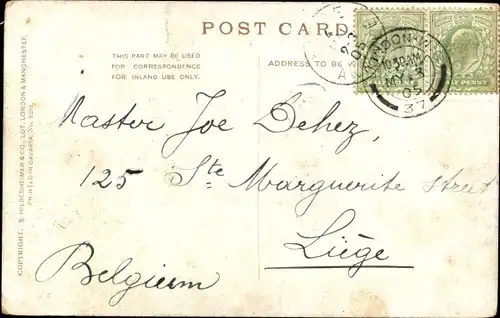 POST CARD
THIS PART MAY BE USED
FOR CORRESPONDENCE
FOR INLAND USE ONLY.
ADDRESS TO BE
LONDON
10.30AM
MY 3
05
37
Master Joe Dehez,
125 Ste Marguerite Street
Liège
Belgium
COPYRIGHT. S. HILDESHEIMER & CO., LDT. LONDON & MANCHESTER.
PRINTED IN BAVARIA. No.